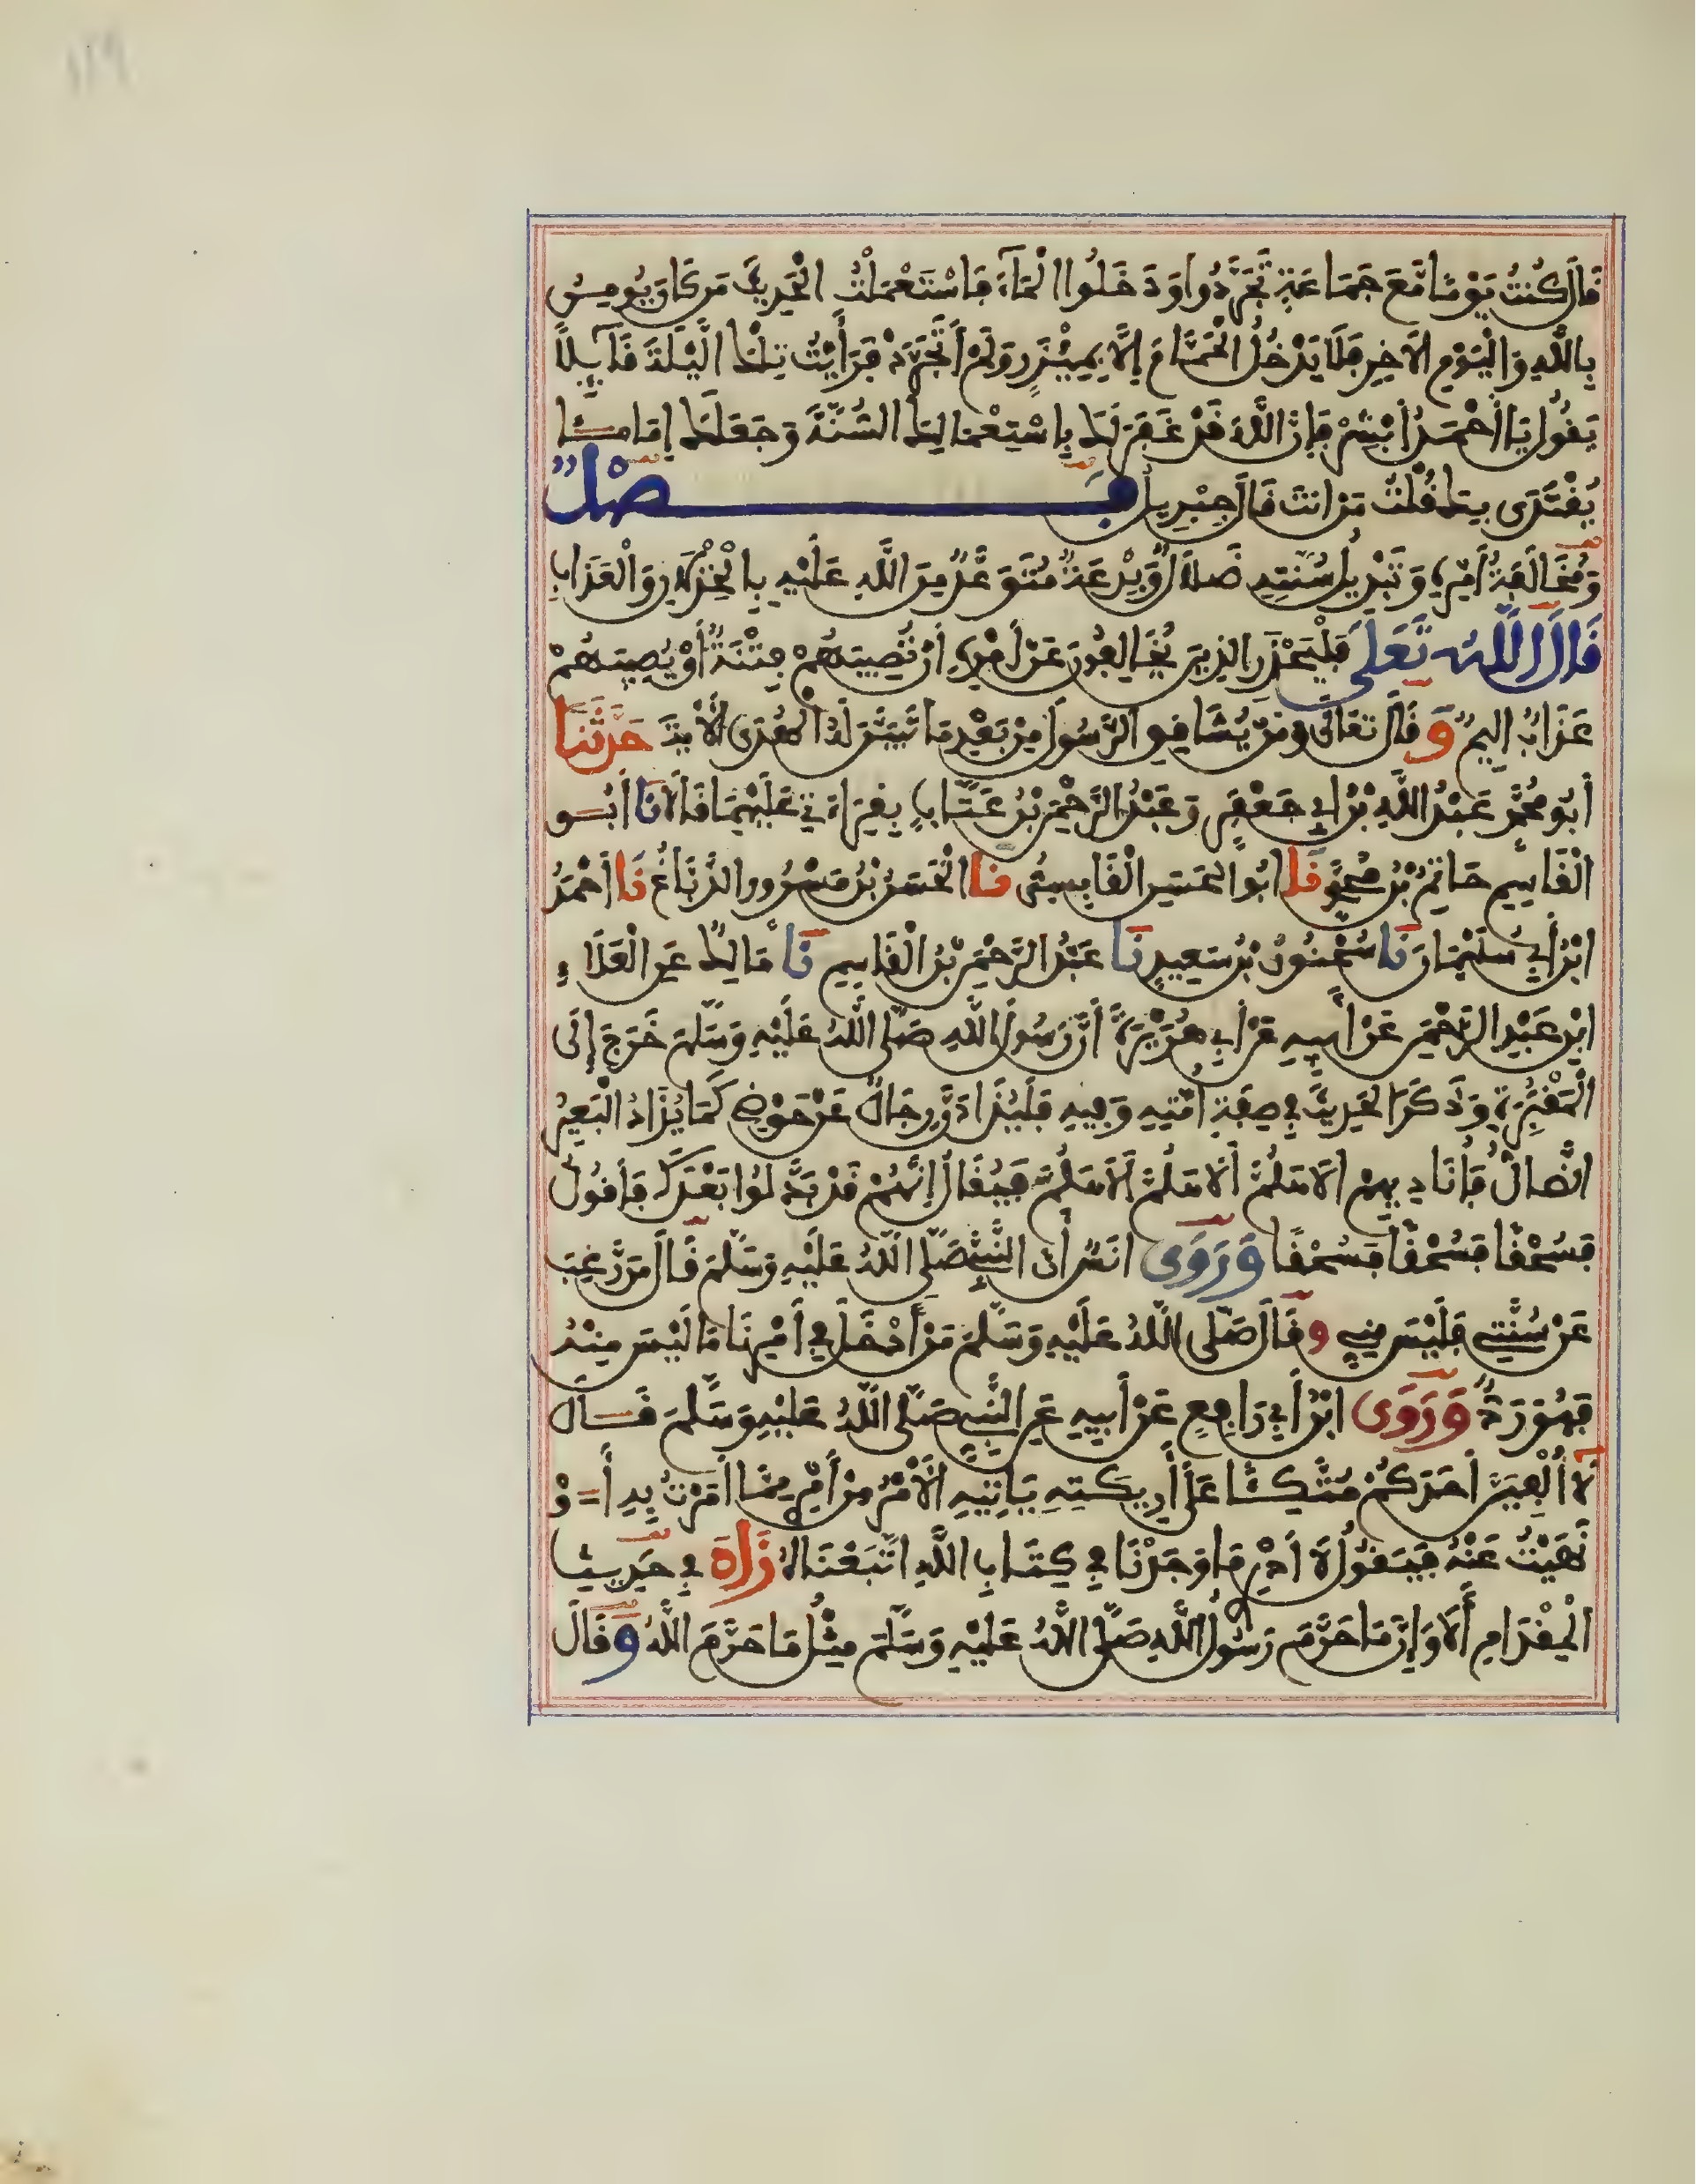 ١١٩
قَالَ كُنْتُ يَوْمًا مَّعَ جَمَاعَةٍ تَجَرَّدُوا وَدَخَلُوا الْمَاءَ فَاسْتَعْمَلْتُ الْحَدِيثَ مَن كَانَ يُومِنُ
بِاللَّهِ وَالْيَوْمِ الَاخِرِ فَلَا يَدْخُلِ الْحَمَّامَ إِلَّا بِمِيْزَرٍ وَلَمْ أَتَجَرَّدْ فَرَأَيْتُ تِلْكَ الَّيْلَةَ قَآئِلاً
يَقُولُ يَا أَحْمَدُ أَبْشِرْ فَإِنَّ اللَّهَ قَدْ غَفَرَ لَكَ بِاسْتِعْمَالِكَ السُّنَّةَ وَجَعَلَكَ إِمَامًا
يُقْتَدَى بِكَ قُلْتُ مَنْ انتَ قَالَ جِبْرِيلُ فَصْلٌ
وَمُخَالَفَةُ أَمْرِهِ وَتَبْدِيلُ سُنَّتِهِ ضَلَالٌ وَبِدْعَةٌ مُّتَوَعَّدٌ مِّنَ اللَّهِ عَلَيْهِ بِالْخِذْلَانِ وَالْعَذَابِ
قَالَ اللَّهُ تَعَلَى فَلْيَحْذَرِ الذِينَ يُخَالِفُونَ عَنْ أَمْرِهِ أَن تُصِيبَهُمْ فِتْنَةٌ أَوْ يُصِيبَهُمْ
عَذَابٌ الِيمٌ وَقَالَ تعَالَى وَمَنْ يُّشَاقِقِ الرَّسُولَ مِنْ بَعْدِ مَا تَبَيَّنَ لَهُ الْهُدَى الَايَةَ حَدَّثَنَا
أَبُو مُحَمَّدٍ عَبْدُ اللَّهِ بْنُ أَبِي جَعْفَرٍ وَعَبْدُ الرَّحْمَنِ بْنُ عَتَّابٍ بِقِرَاءَتِي عَلَيْهِمَا قَالَا نَا أَبُو
الْقَاسِمِ حَاتِمُ بْنُ مُحَمَّدٍ نَا أَبُو الْحَسَنِ الْقَابِسِيُّ نَا الْحَسَنُ بْنُ مَسْرُورٍ الدَّبَّاغُ نَا أَحْمَدُ
ابْنُ أَبِي سُلَيْمَانَ نَا سُحْنُونُ بْنُ سَعِيدٍ نَا عَبْدُ الرَّحْمَنِ بْنُ الْقَاسِمِ نَا مَالِكٌ عَنِ الْعَلَاءِ
ابْنِ عَبْدِ الرَّحْمَنِ عَنْ أَبِيهِ عَنْ أَبِي هُرَيْرَةَ أَنَّ رَسُولَ اللَّهِ صَلَّى اللَّهُ عَلَيْهِ وَسَلَّمَ خَرَجَ إِلَى
الْمَقْبُرَةِ وَذَكَرَ الْحَدِيثَ فِي صِفَةِ أُمَّتِهِ وَفِيهِ فَلَيُذَادَنَّ رِجَالٌ عَنْ حَوْضِي كَمَا يُذَادُ الْبَعِيرُ
الضَّالُّ فَأُنَادِيهِمْ أَلَا هَلُمَّ أَلَا هَلُمَّ أَلَا هَلُمَّ فَيُقَالُ إِنَّهُمْ قَدْ بَدَّلُوا بَعْدَكَ فَأَقُولُ
فَسُحْقًا فَسُحْقًا فَسُحْقًا وَرَوَى انَسٌ أَنَّ النَّبِيَّ صَلَّى اللَّهُ عَلَيْهِ وَسَلَّمَ قَالَ مَن رَّغِبَ
عَنْ سُنَّتِي فَلَيْسَ مِنِّي وَقَالَ صَلَّى اللَّهُ عَلَيْهِ وَسَلَّمَ مَنْ أَدْخَلَ فِي أَمْرِنَا مَا لَيْسَ مِنْهُ
فَهُوَ رَدٌّ وَرَوَى ابْنُ أَبِي رَافِعٍ عَنْ أَبِيهِ عَنِ النَّبِيِّ صَلَّى اللَّهُ عَلَيْهِ وَسَلَّمَ قَالَ
لَا أُلْفِيَنَّ أَحَدَكُمْ مُتَّكِئًا عَلَى أَرِيكَتِهِ يَاتِيهِ الْأَمْرُ مِنْ أَمْرِي مِمَّا أَمَرْتُ بِهِ أَوْ
نَهَيْتُ عَنْهُ فَيَقُولُ لَا أَدْرِي مَا وَجَدْنَا فِي كِتَابِ اللَّهِ اتَّبَعْنَاهُ زَادَ فِي حَدِيثِ
الْمِقْدَامِ أَلَا وَإِنَّ مَا حَرَّمَ رَسُولُ اللَّهِ صَلَّى اللَّهُ عَلَيْهِ وَسَلَّمَ مِثْلُ مَا حَرَّمَ اللَّهُ وَقَالَ